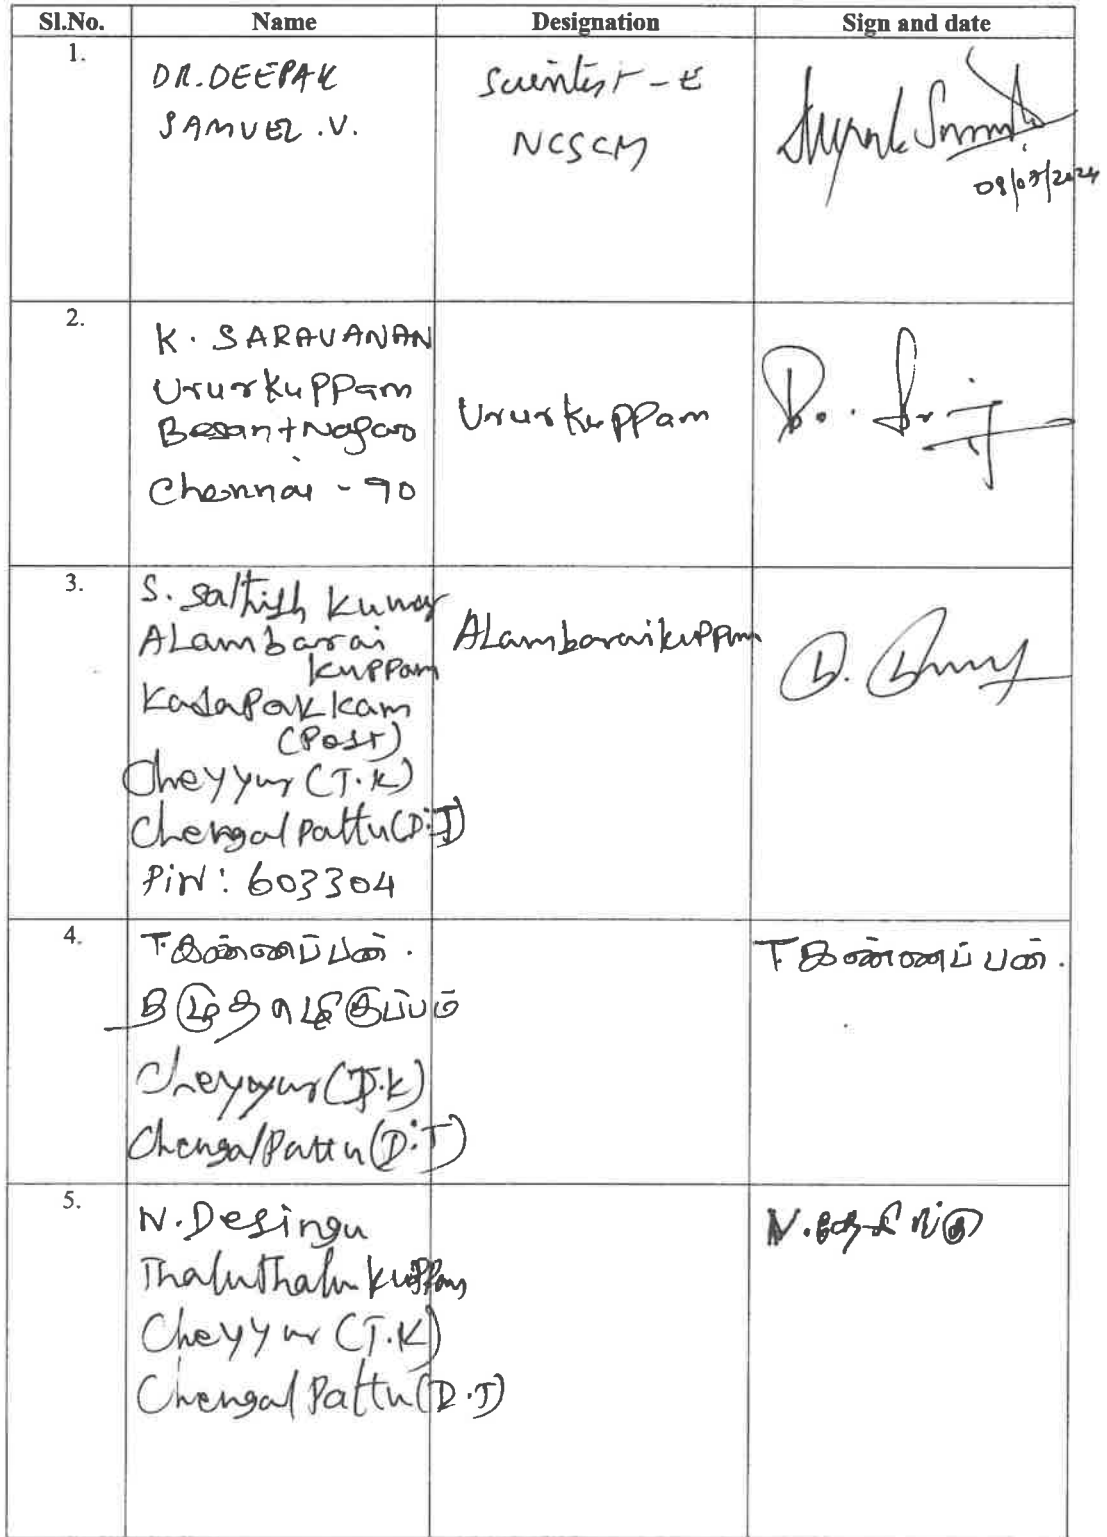 Sl.No. Name Designation Sign and date
1.
DR.DEEPAK
SAMUEL .V.
Scientist - E
NCSCM
2.
K. SARAVANAN
Ururkuppam
Besant Nagar
Chennai - 90
Ururkuppam
3.
S. Sathish Kumar
ALambarai
kuppam
Kadapakkam
(Post)
Cheyyur (T.K)
Chengalpattu (D.T)
PiN: 603304
ALambaraikuppam
4.
T. கண்ணப்பன்.
Cheyyur (T.K)
Chengalpattu (D.T)
T கண்ணப்பன்.
5.
N. Desingu
Cheyyur (T.K)
Chengalpattu (D.T)
N. தேசிங்கு